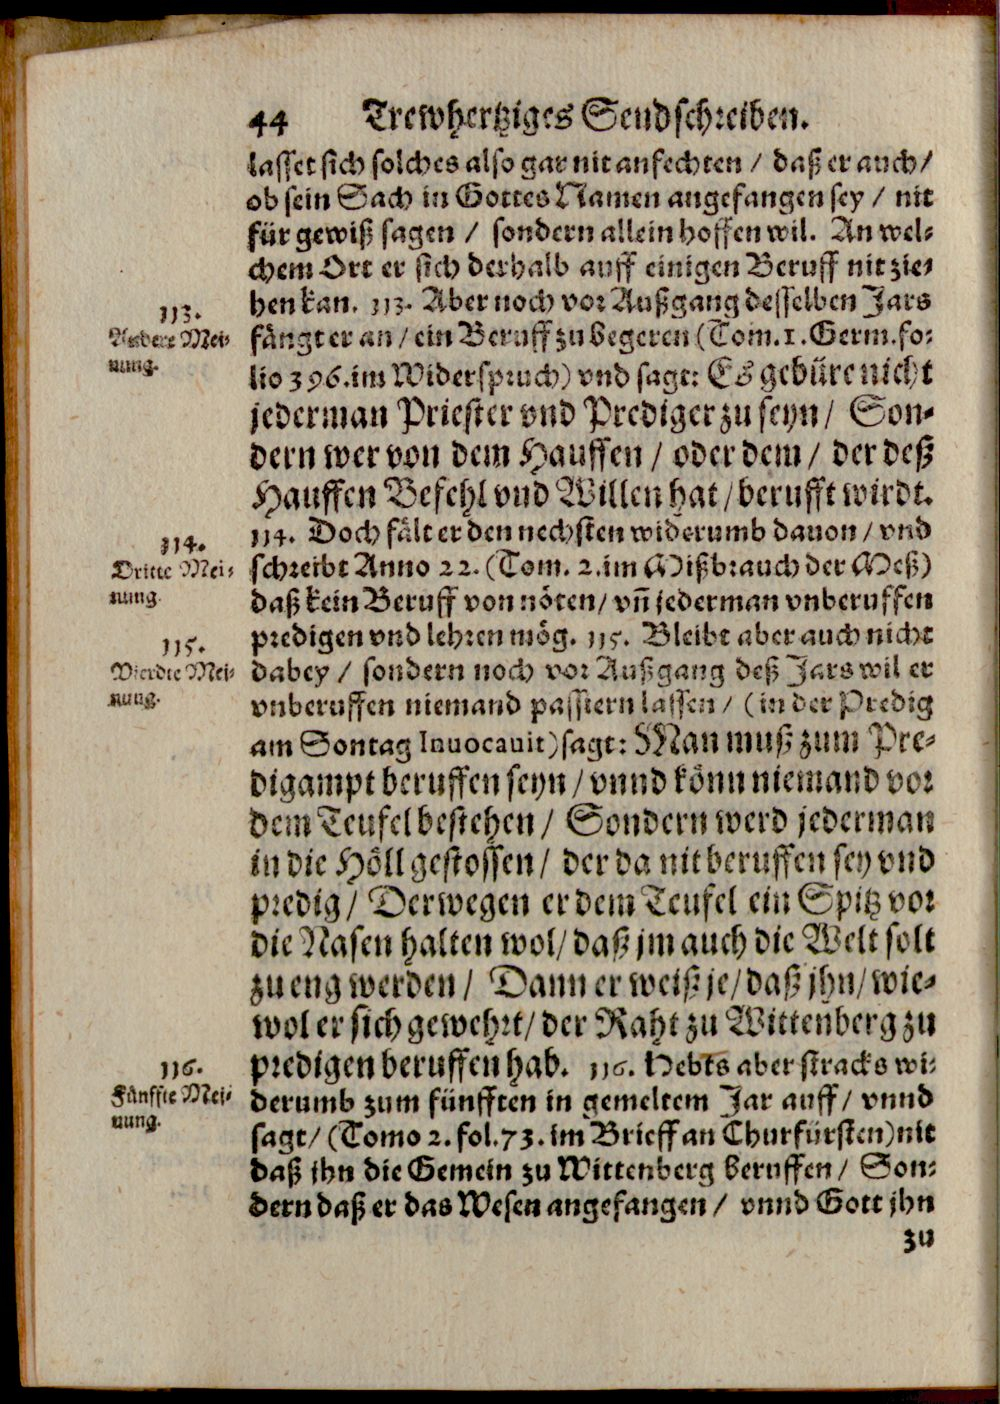 44 Trewhertziges Sendschreiben.
lasset sich solches also gar nit anfechten / daß er auch /
ob sein Sach in Gottes Namen angefangen sey / nit
für gewiß sagen / sondern allein hoffen wil. An wel-
chem Ort er sich derhalb auff einigen Beruff nit zie-
hen kan. 113. Aber noch vor Außgang desselben Jars
113.
fängt er an / ein Beruff zu begeren (Tom. 1. Germ. fo-
Andere Mei-
nung.
lio 396. im Widerspruch) vnd sagt: Es gebüre nicht
jederman Priester vnd Prediger zu seyn / Son-
dern wer von dem Hauffen / oder dem / der deß
Hauffen Befehl vnd Willen hat / berufft wirdt.
114. Doch fält er den nechsten widerumb dauon / vnd
114.
schreibt Anno 22. (Tom. 2. im Mißbrauch der Meß)
Dritte Mei-
nung.
daß kein Beruff von nöten / vñ jederman vnberuffen
predigen vnd lehren mög. 115. Bleibt aber auch nicht
115.
dabey / sondern noch vor Außgang deß Jars wil er
Vierdte Mei-
nung.
vnberuffen niemand passiern lassen / (in der Predig
am Sontag Inuocauit) sagt: Man muß zum Pre-
digampt beruffen seyn / vnnd könn niemand vor
dem Teufel bestehen / Sondern werd jederman
in die Höll gestossen / der da nit beruffen sey vnd
predig / Derwegen er dem Teufel ein Spitz vor
die Nasen halten wol / daß jm auch die Welt solt
zu eng werden / Dann er weiß je / daß jhn / wie-
wol er sich gewehrt / der Raht zu Wittenberg zu
predigen beruffen hab. 116. Hebts aber stracks wi-
116.
Fünffte Mei-
nung.
derumb zum fünfften in gemeltem Jar auff / vnnd
sagt / (Tomo 2. fol. 73. im Brieff an Churfürsten) nit
daß jhn die Gemein zu Wittenberg beruffen / Son-
dern daß er das Wesen angefangen / vnnd Gott jhn
zu